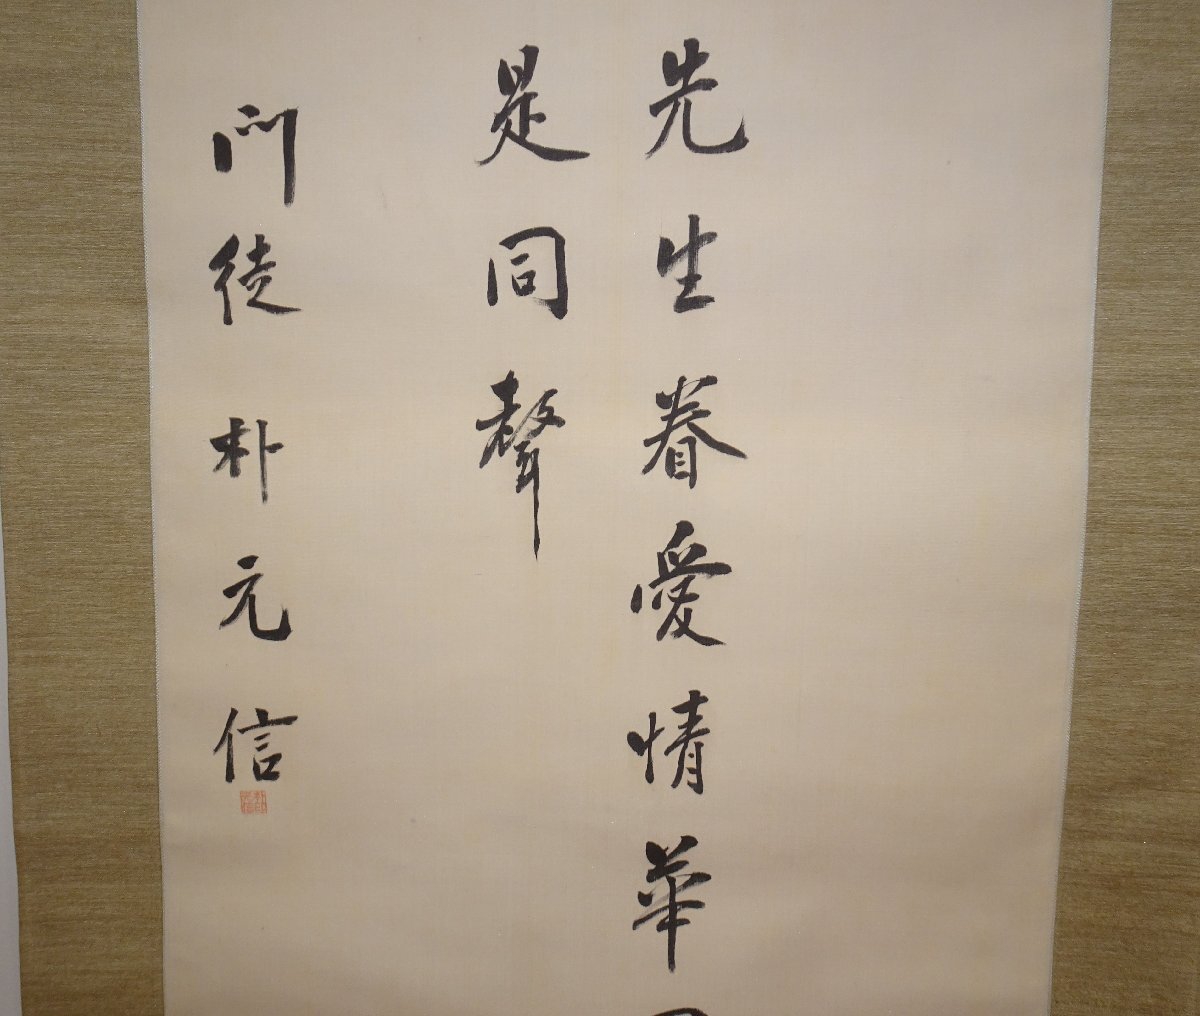 先生眷愛情華
是同聲
門徒 朴元信